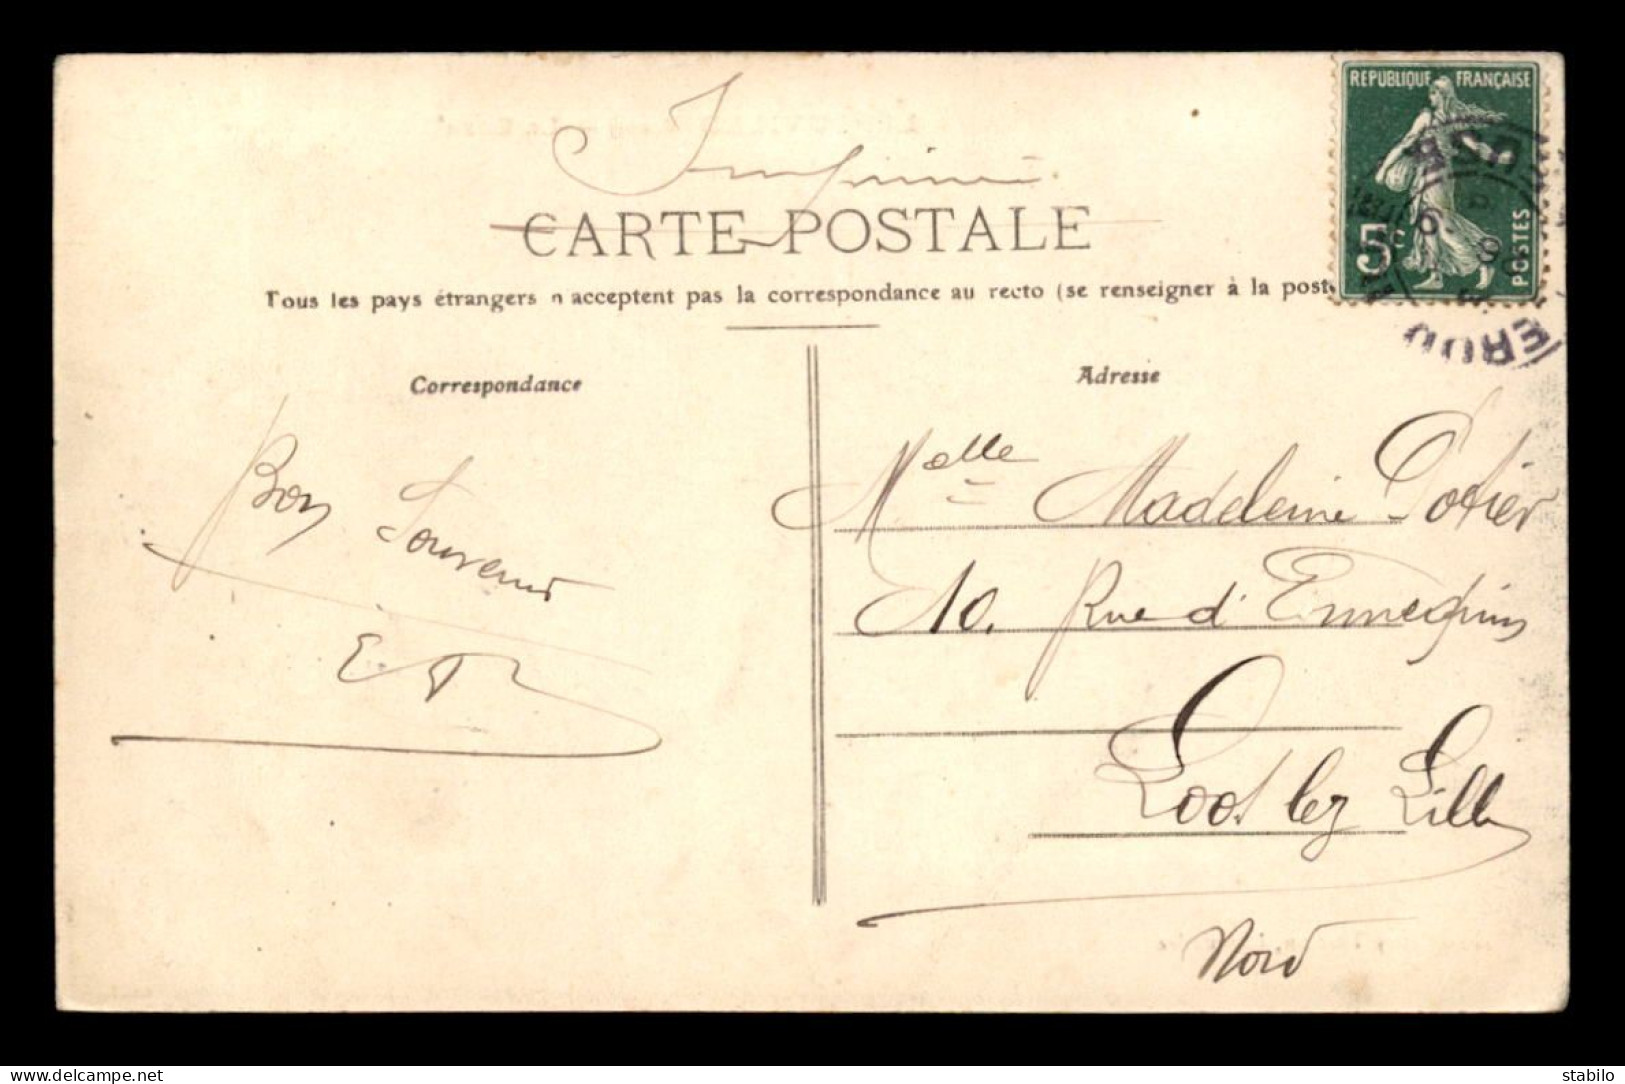 Imprimé
RÉPUBLIQUE FRANÇAISE
5c
POSTES
CARTE POSTALE
Tous les pays étrangers n'acceptent pas la correspondance au recto (se renseigner à la poste
Correspondance
Adresse
Bon Souvenir
Melle Madeleine Potier
10. Rue d'Ennequin
Loos lez Lille
Nord
delcampe.net
stabilo